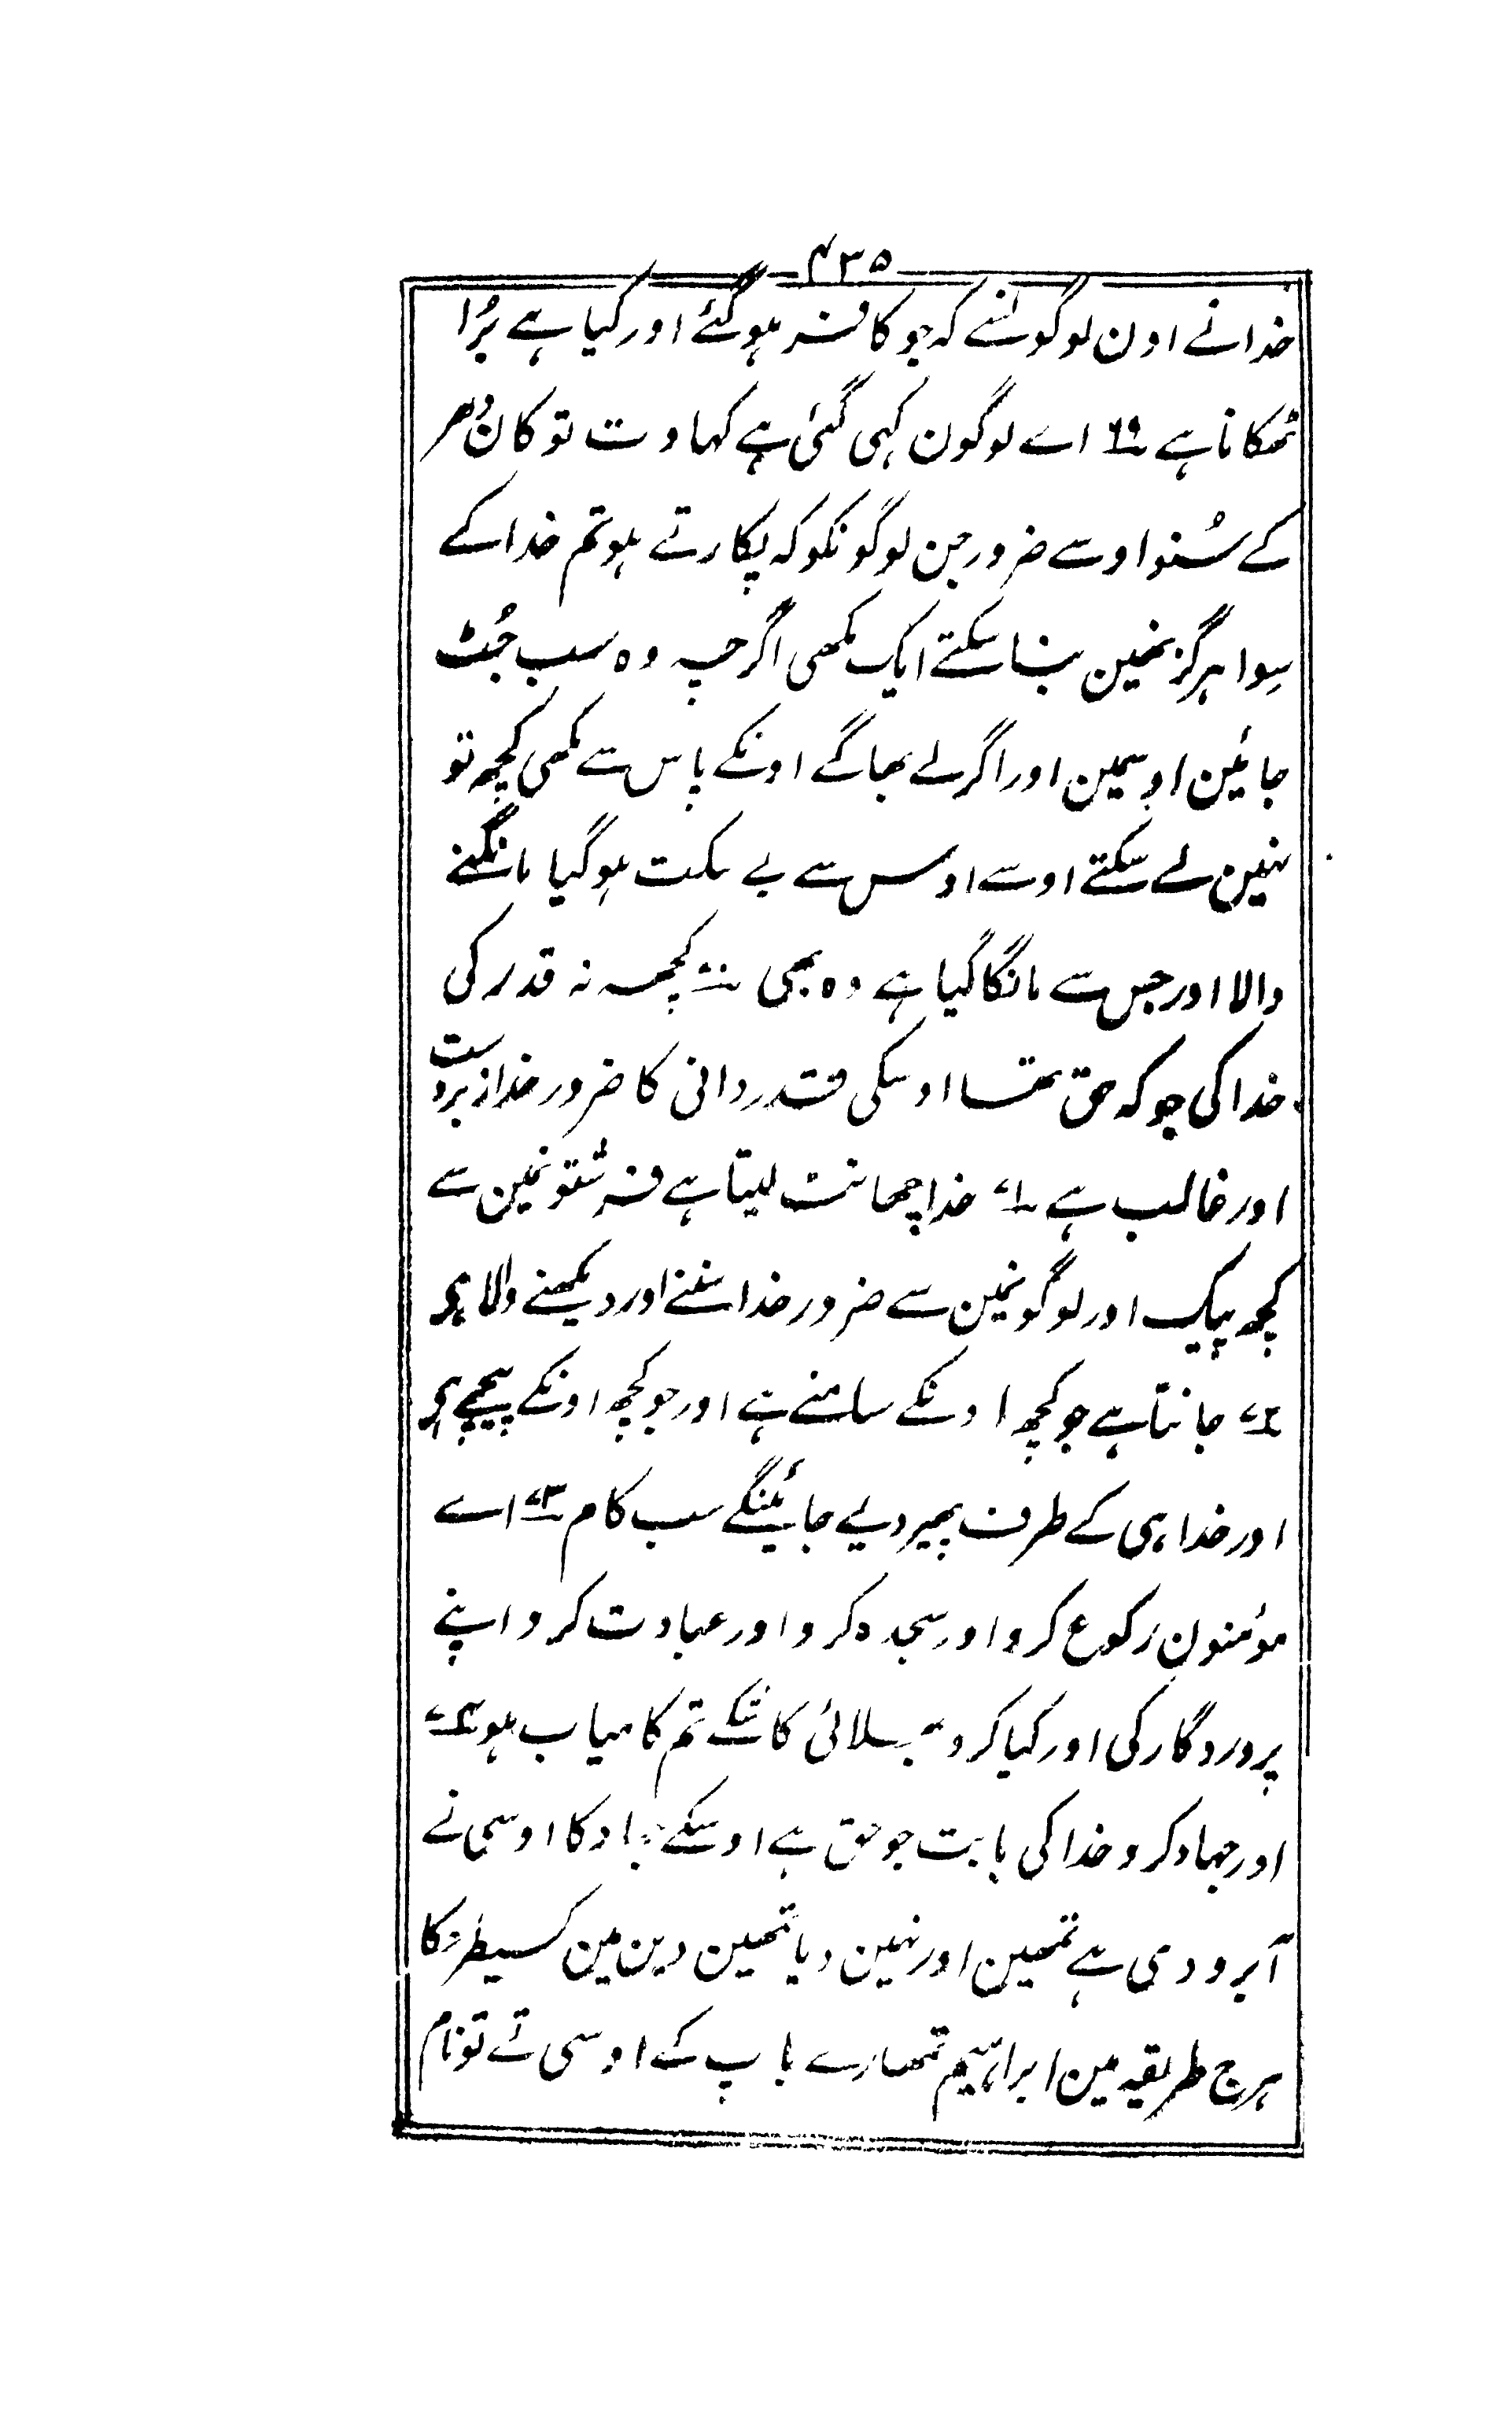 ۴۳۵
خدا نے اون لوگونسے کہ جو کافر ہوگئے اور کیا ہے بُرا
ٹھکانا ہے ۶۹ اے لوگون کہی گئی ہے کہاوت تو کان دھر
کے سُنو اوسے ضرور جن لوگونکو کہ پکارتے ہو تم خدا کے
سِوا ہرگز نہین بنا سکتے ایک مکھی اگرچہ وہ سب جُٹ
جائین اوسمین اور اگر لے بھاگے اونکے پاس سے مکھی کچھ تو
نہین لے سکتے اوسے اوس سے بے سکت ہوگیا مانگنے
والا اور جس سے مانگا گیا ہے وہ بھی ۷۰ کچھ نہ قدر کی
خدا کی جو کہ حق تھا اوسکی قدردانی کا ضرور خدا زبردست
اور غالب ہے ۷۱ خدا چھانٹ لیتا ہے فرشتونمین سے
کچھ پیک اور لوگونمین سے ضرور خدا سننے اور دیکھنے والا ہی
۷۲ جانتا ہے جو کچھ اونکے سامنے ہے اور جو کچھ اونکے پیچھے ہی
اور خدا ہی کے طرف پھیر دیے جائینگے سب کام ۷۳ اے
مؤمنون رکوع کرو اور سجدہ کرو اور عبادت کرو اپنے
پروردگار کی اور کیا کرو بھلائی کا تنکے تم کامیاب ہو ۷۴
اور جہاد کرو خدا کی بابت جو حق ہے اوسکے جہاد کا اوسی نے
آبرو دی ہے تمھین اور نہین دیا تمھین دین مین کسیطرحکا
ہرج طریقہ مین ابراہیم تمھارے باپ کے اوسی نے تو نام